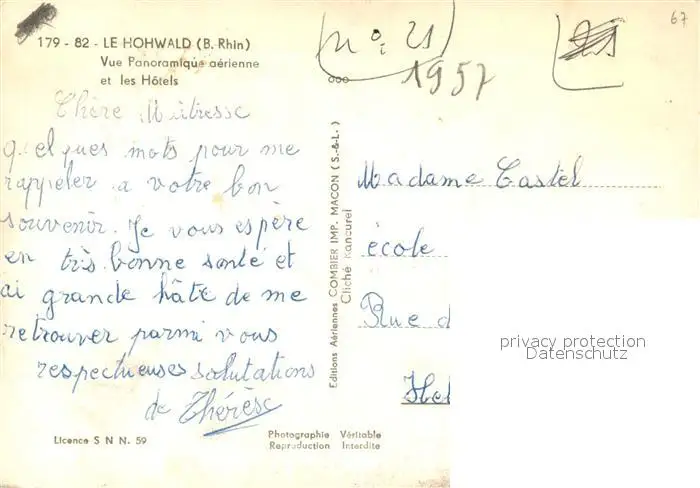 179 - 82 - LE HOHWALD (B. Rhin)
Vue Panoramique aérienne
et les Hôtels
Chère Maîtresse
quelques mots pour me
rappeler a votre bon
souvenir. Je vous espère
en très bonne santé et
ai grande hâte de me
retrouver parmi vous
respectueuses salutations
de Thérèse
Licence S N N. 59
Photographie Véritable
Reproduction Interdite
Editions Aériennes COMBIER IMP. MACON (S.-&-L.)
Cliché Rancurel
n°: 21
1957
67
Madame Castel
école
Rue d
privacy protection
Datenschutz